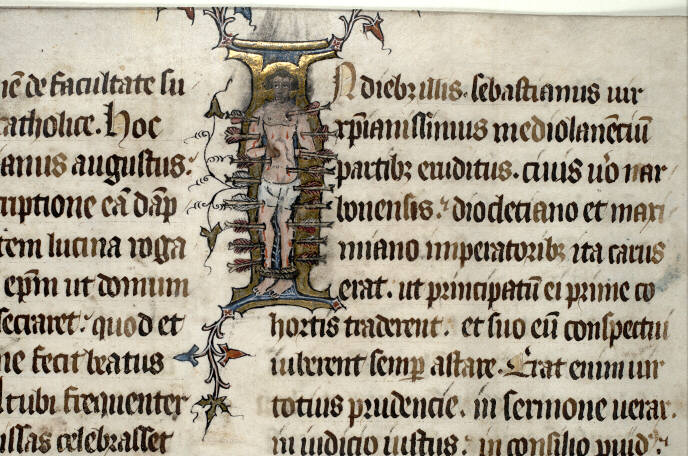 nē de facultate su
catholice. Hoc
anus augustus.
ruptione eā dāp
tem lucina roga
epm̄ ut domum
secraret. quod et
ne fecit beatus
tubi frequenter
issas celebrasset
In diebꝫ illis. sebastianus uir
xp̄ianissimus mediolanētiū
partibꝫ eruditus. ciuis u̾o nar
bonensis. dioclitiano et maxi
miano imperatoribꝫ ita carus
erat. ut principatū ei prime co
hortis traderent. et suo eū conspectui
iuberent semꝑ astare. Erat enim uir
totius prudencie. in sermone uerax.
in iudicio iustus. in consilio puid̾.